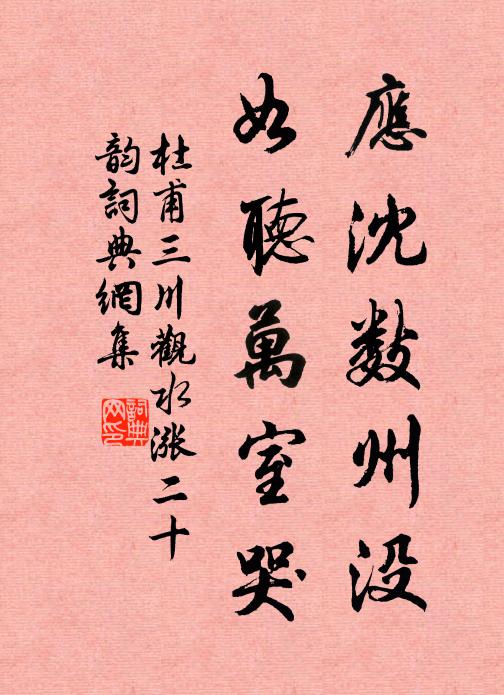 應沈数州没
如聽萬室哭
杜甫三川觀水漲二十
韵詞典網集
詞典
网印